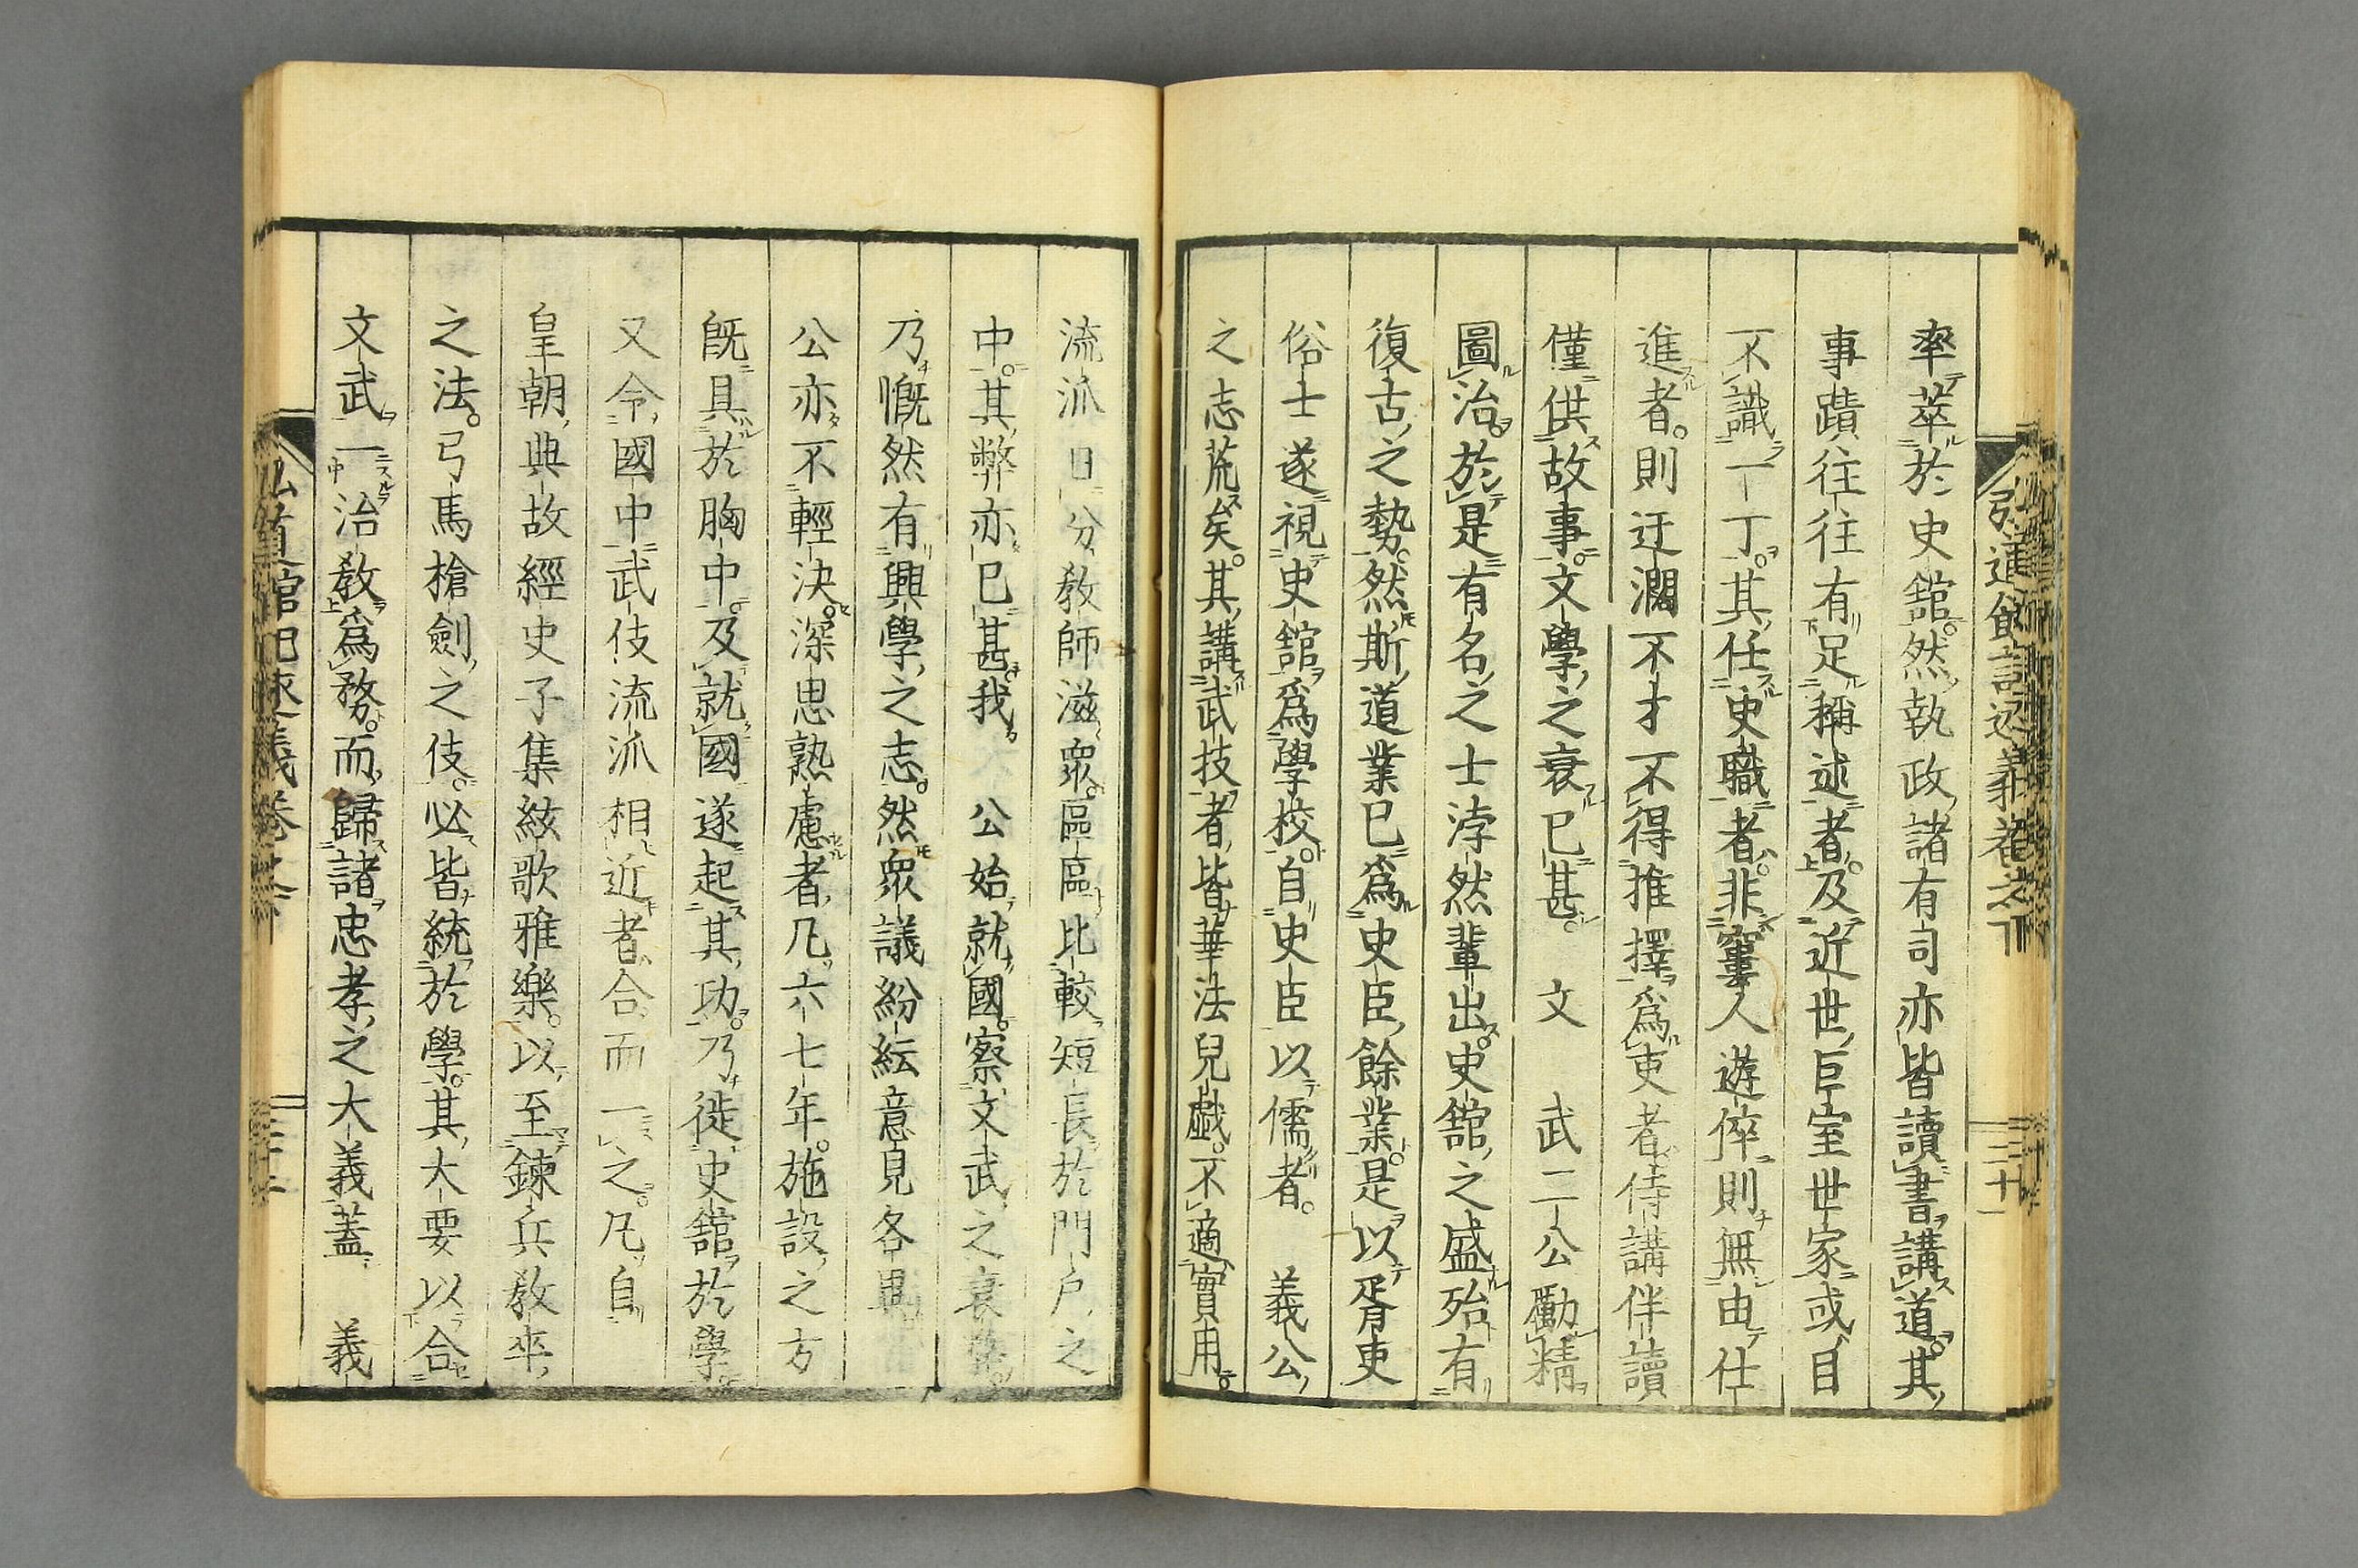 弘道館記述義卷之下
三十一
率萃於史館。然執政諸有司亦皆讀書講道。其
事蹟往往有足稱述者。及近世巨室世家或目
不識一丁。其任史職者。非窶人遊倅則無由仕
進者。則迂濶不才不得推擇爲吏者。侍講伴讀
僅供故事。文學之衰已甚。文武二公勵精
圖治。於是有名之士浡然輩出。史館之盛殆有
復古之勢。然斯道業已爲史臣餘業。是以胥吏
俗士遂視史館爲學校。自史臣以儒者。義公
之志荒矣。其講武技者皆華法兒戯。不適實用。
流派日分敎師滋衆。區區比較短長於門戶之
中。其弊亦已甚。我公始就國。察文武之衰
乃慨然有興學之志。然衆議紛紜意見各異
公亦不輕決。深思熟慮者凡六七年。施設之方
既具於胸中。及就國遂起其功。乃徙史館於學。
又令國中武伎流派相近者合而一之。凡自
皇朝典故經史子集絃歌雅樂。以至錬兵敎卒
之法。弓馬槍劍之伎。必皆統於學。其大要以合
文武一治敎爲務。而歸諸忠孝之大義蓋義
弘道館記述義卷之下